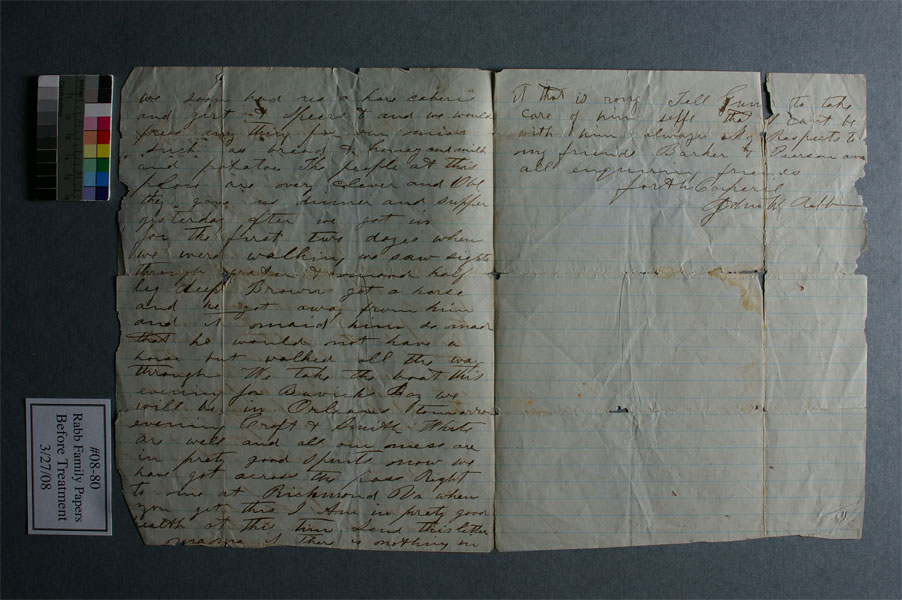 we soon had us a hare cabens
and girt & Spears & and we would
press any thing for our mess
such as bread & honey and milk
and potatoe The people at this
place are very clever and
the gave us dinner and supper
yesterday after we got in
for the first two dayes when
we were walking we saw sights
through water & mud half
leg deep Brown got a horse
and he got away from him
and it maid him so mad
that he would not have a
horse but walked all the way
through We take the boat this
evening for Bay we
will be in Orleans tomorrow
evening Croft & Smith White
are well and all our mess are
in prety good Spirits now we
have got across the pass Right
to me at Richmond Va when
you get this I Am in prety good
health at this time Send this letter
mama if there is nothing in
it that is rong Tell to take
care of him self that I cant be
with him always My Respects to
my friends Barker & Pierson and
all enquiring friends
John W Rabb
#08-80
Rabb Family Papers
Before Treatment
3/27/08